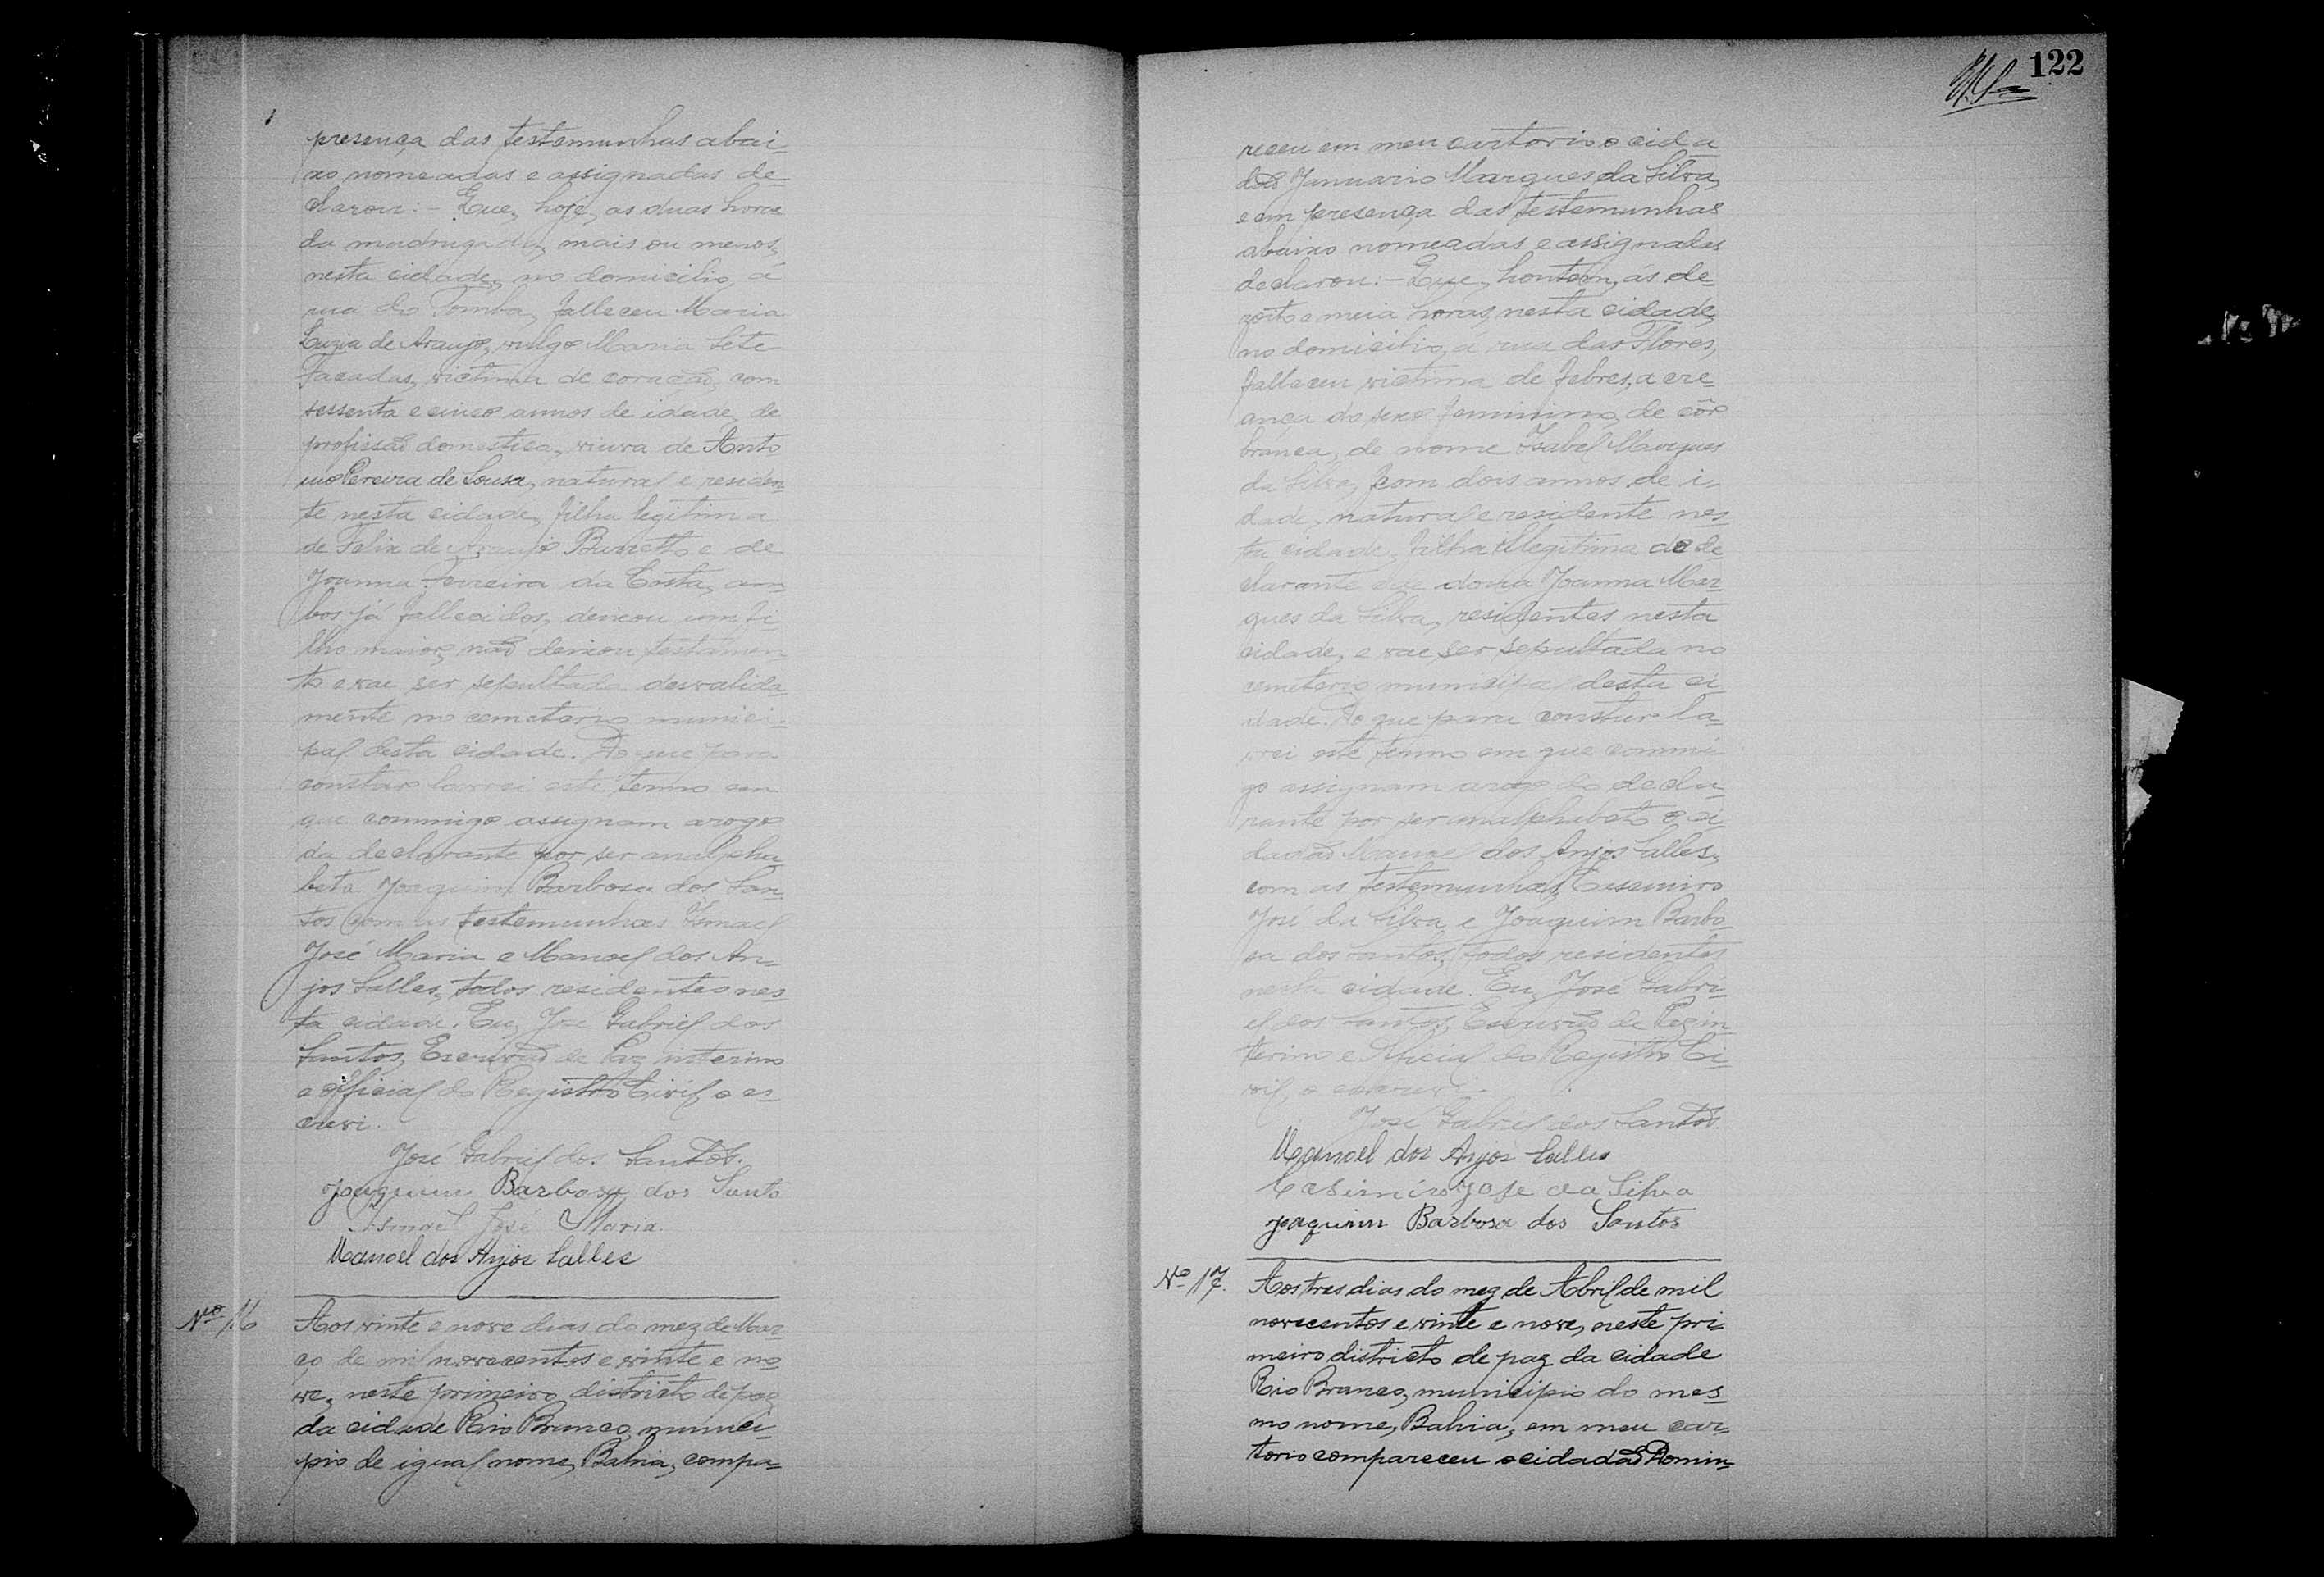 presença das testemunhas abai-
xo nomeadas e assignadas de-
clarou:- Que, hoje, as duas horas
da madrugada, mais ou menos,
nesta cidade, no domicilio, á
rua do Tomba, falleceu Maria
Luzia de Araujo, vulgo Maria Sete
Facadas, victima de coração, com
sessenta e cinco annos de idade, de
profissão domestica, viuva de Anto
nio Pereira de Sousa, natural e residen-
te nesta cidade, filha legitima
de Felix de Araujo Barretto e de
Joanna Ferreira da Costa, am-
bos já fallecidos, deixou um fi-
lho maior, não deixou testamen-
to e vae ser sepultada desvalida-
mente no cemeterio munici-
pal desta cidade. Do que para
constar lavrei este termo em
que commigo assignam arogo
da declarante por ser analpha-
beta Joaquim Barbosa dos San-
tos com as testemunhas Ismael
José Maria e Manoel dos An-
jos Salles, todos residentes nes-
ta cidade. Eu, José Gabriel dos
Santos, Escrivão de Paz interino
e official do Registro Civil, o es-
crevi.
José Gabriel dos Santos.
Joaquim Barbosa dos Santo
Ismael José Maria.
Manoel dos Anjos Salles
Nº 16
Aos vinte e nove dias do mez de Mar-
ço, de mil novecentos e vinte e no-
ve, neste primeiro districto de paz
da cidade Rio Branco, munici-
pio de igual nome, Bahia, compa-
122
receu em meu cartorio o cida
dão Januario Marques da Silva,
e em presença das testemunhas
abaixo nomeadas e assignadas
declarou:- Que, hontem, ás de-
zoito e meia horas, nesta cidade,
no domicilio, á rua das Flores,
falleceu victima de febres, a cre-
ança do sexo feminino, de côr
branca, de nome Isabel Marques
da Silva, com dois annos de i-
dade, natural e residente nes-
ta cidade, filha illegitima do de-
clarante e de dona Joanna Mar-
ques da Silva, residentes nesta
cidade, e vae ser sepultada no
cemeterio municipal desta ci-
dade. Do que para constar la-
vrei este termo em que commi-
go assignam arogo do decla-
rante por ser analphabeto o ci-
dadão Manoel dos Anjos Salles,
com as testemunhas, Casemiro
José da Silva e Joaquim Barbo-
sa dos Santos, todos residentes
nesta cidade. Eu, José Gabri-
el dos Santos, Escrivão de Paz in-
terino e Official do Registro Ci-
vil, o escrevi.
José Gabriel dos Santos.
Manoel dos Anjos Salles
Casimiro José da Silva
Joaquim Barbosa dos Santos
Nº 17.
Aos tres dias do mez de Abril de mil
novecentos e vinte e nove, neste pri-
meiro districto de paz da cidade
Rio Branco, municipio do mes-
mo nome, Bahia, em meu car-
torio compareceu o cidadão Domin-